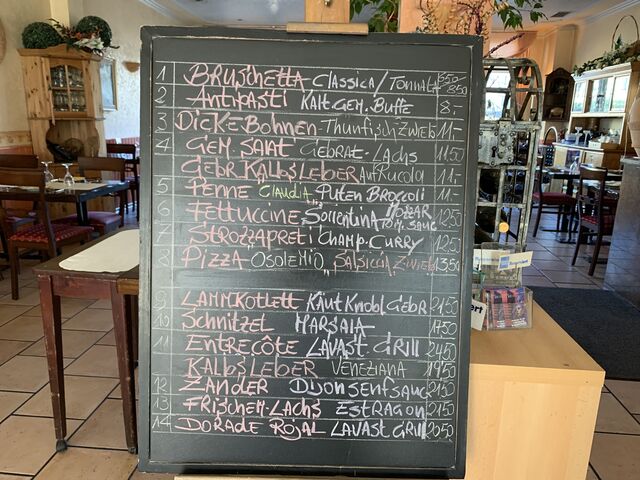 1 BRUSCHETTA CLASSICA/TONNATA 6.50 8.50
2 ANTIPASTI KALT GEM. BUFFE 8.-
3 DICKE BOHNEN-THUNFISCH ZWIEB 11.-
4 GEM SALAT GEBRAT. LACHS 11.50
GEBR KALBSLEBER AUF RUCOLA 11.-
5 PENNE CLAUDIA PUTEN BROCCOLI 11.-
6 FETTUCCINE SORRENTINA MOZZAR TOM SAUC 12.50
7 STROZZAPRETI CHAMP. CURRY 12.50
8 PIZZA OSOLEMIO, SALSICCIA, ZWIEB 13.50
9 LAMMKOTLETT KÄUT KNOBL GEBR 21.50
10 SCHNITZEL MARSALA 17.50
11 ENTRECÔTE LAVAST. GRILL 24.50
KALBSLEBER VENEZIANA 19.50
12 ZANDER DIJONSENFSAUC 21.50
13 FRISCHEM LACHS ESTRAGON 21.50
14 DORADE ROJAL LAVAST GRILL